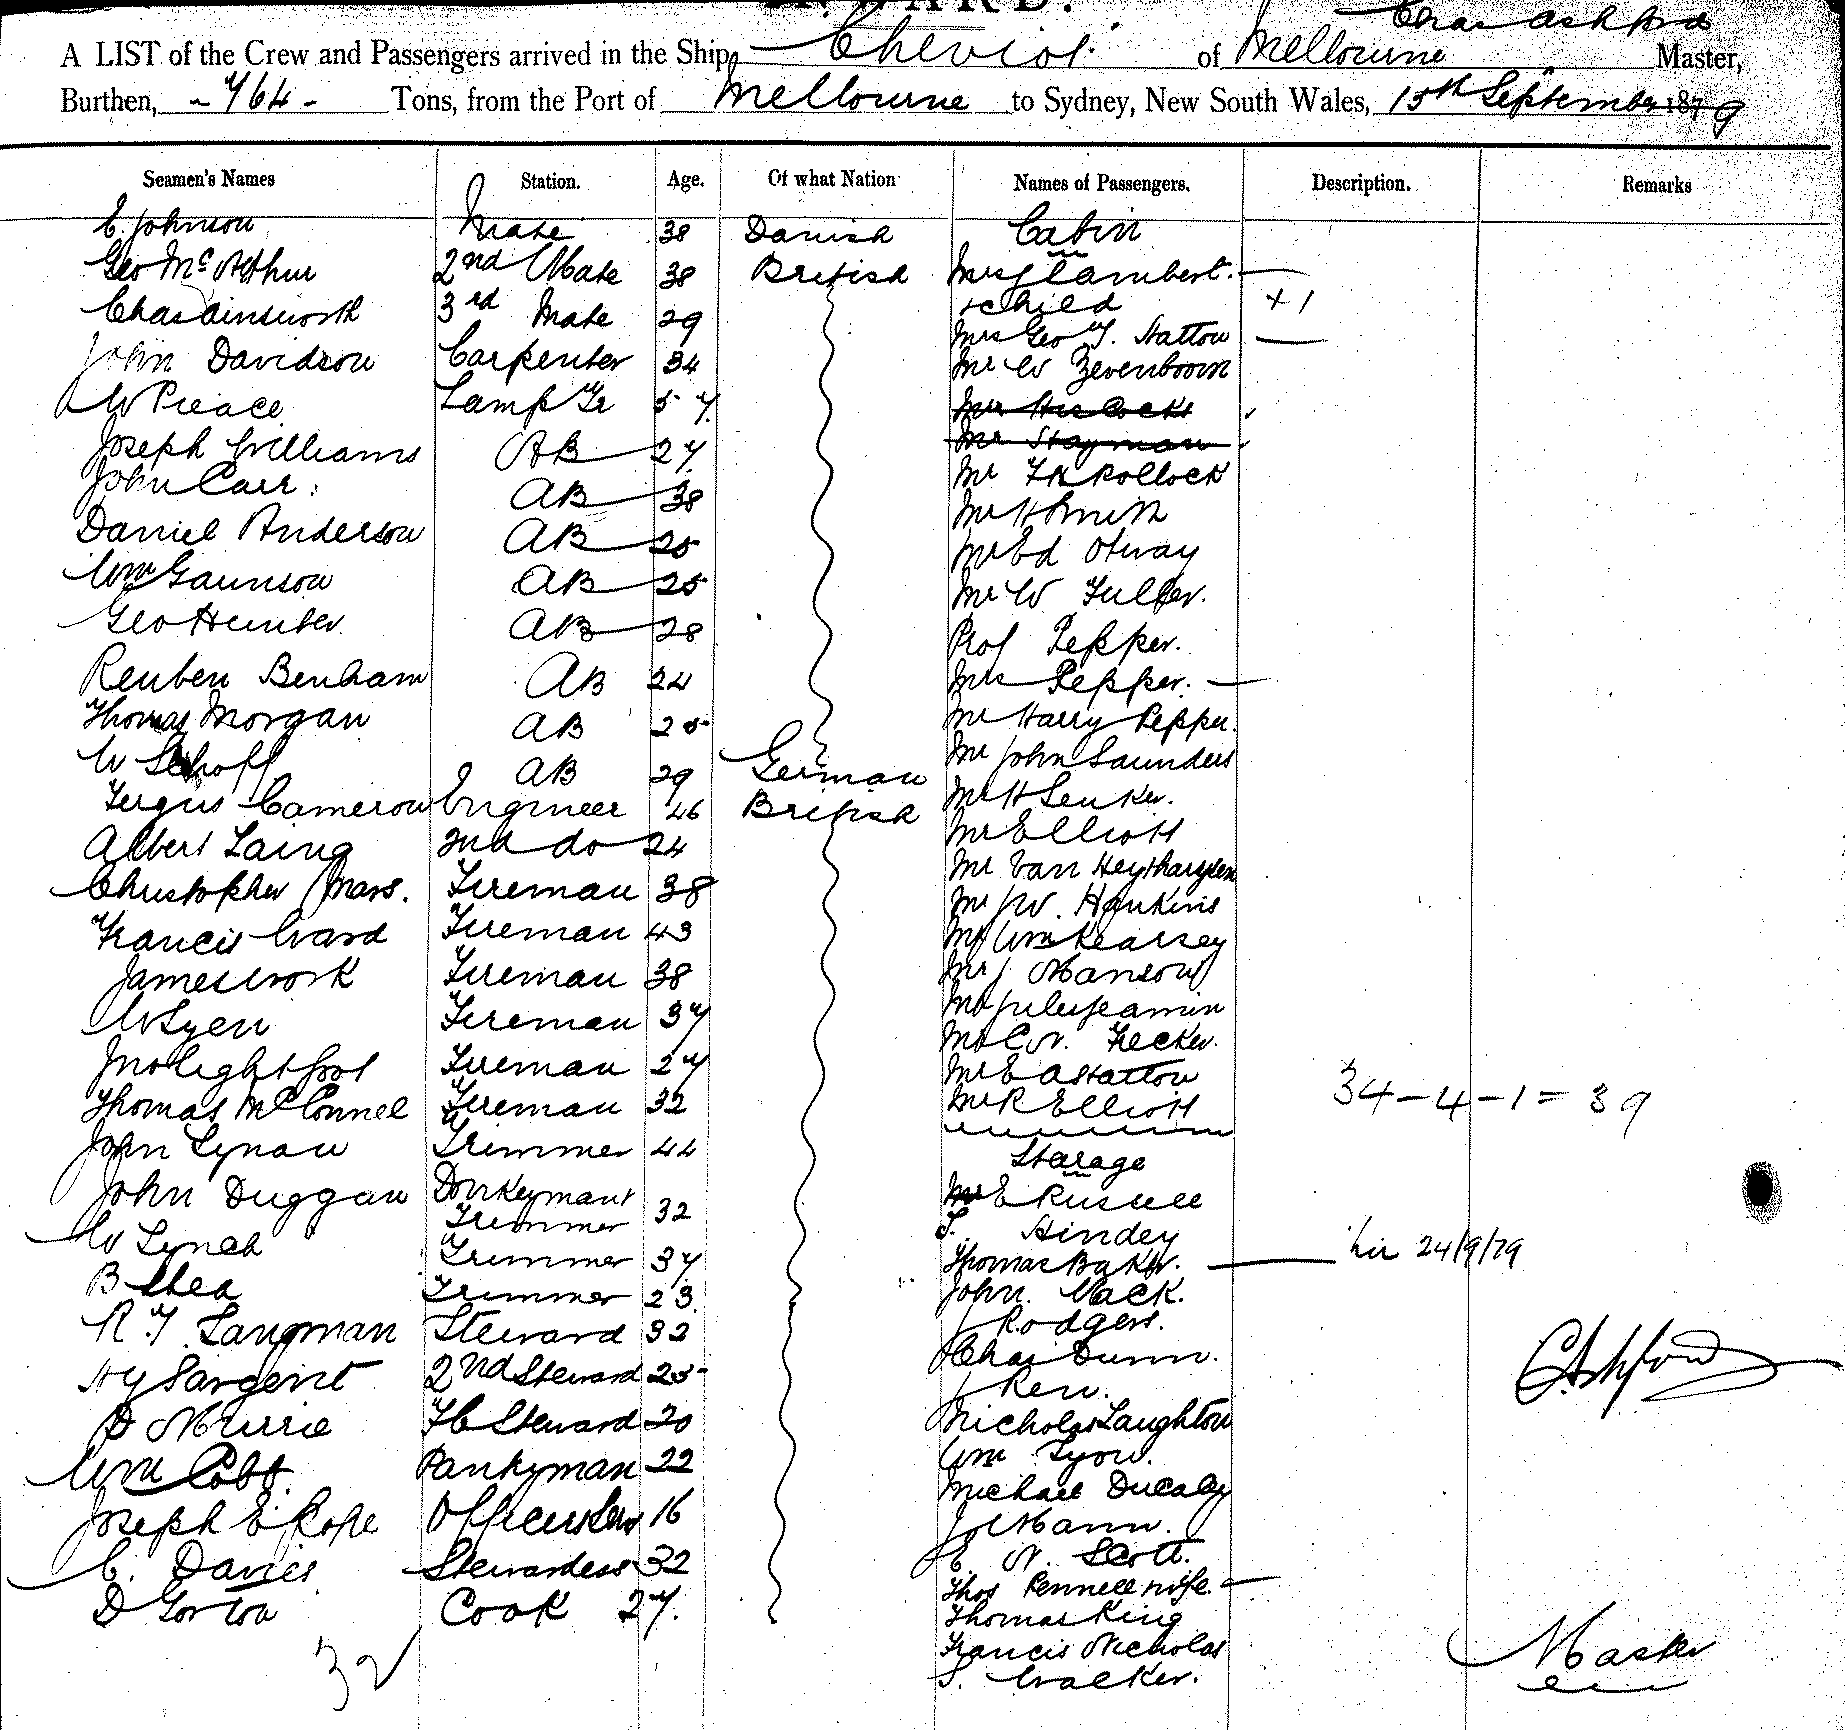 Chas Ashford
A LIST of the Crew and Passengers arrived in the Ship, Cheviot of Melbourne Master,
Burthen, - 764 - Tons, from the Port of Melbourne to Sydney, New South Wales, 15th September 1879
Seamen's Names Station. Age. Of what Nation Names of Passengers. Description. Remarks
C. Johnson Mate 38 Danish Cabin
Geo McArthur 2nd Mate 38 British Mrs J Lambert. —
Chas Ainsworth 3rd Mate 29 + child + 1
John Davidson Carpenter 34 Mrs Geo T. Hatton —
W Pieace Lamp Tr 57 Mr W Zevenboom
Joseph Williams AB 27
John Carr AB 38 Mr Pollock
Daniel Anderson AB 25 Mr H Smith
Wm Gaunson AB 25 Mr Ed Otway
Geo Hunter AB 28 Mr W Fuller.
Reuben Benham AB 24 Prof Pepper.
Thomas Morgan AB 25 Mrs Pepper. —
W AB 29 German Mr Harry Pepper.
Fergus Cameron Engineer 46 British Mr John Saunders
Albert Laing 2nd do 24 Mr H
Christopher Mars. Fireman 38 Mr Elliott
Francis Ward Fireman 43 Mr Van
James Work Fireman 38 Mr W. Hankins
W Lyen Fireman 37 Mr Wm Kearsey
Jno Lightfoot Fireman 27 Mr J Manson
Thomas McConnel Fireman 32 Mr
John Lynau Trimmer 44 Mr Fecker.
John Duggan Donkeyman & Trimmer 32 Mr E A Hatton
W Lynch Trimmer 37 Mr R Elliott 34 - 4 - 1 = 39
B Shea Trimmer 23 Starage
R. T Langman Steward 32 Mr E Russell
Hy Sargent 2nd Steward 25 S. Hindey
D Murrie FC Steward 20 Thomas Baker. — 24/9/79
Wm Cobb. Pantryman 22 John Mack.
Joseph E Rope Officers Serv 16 J Rodgers.
C. Davies Stewardess 32 Chas Dunn.
D Gorton Cook 27. J Rew.
Nicholas Laughton
C Ashford
Wm Lyon.
Michael
J Mann.
E N. Scott.
Thos Pennell wife —
Thomas King
Francis Nicholas
S. Walker.
Master
32